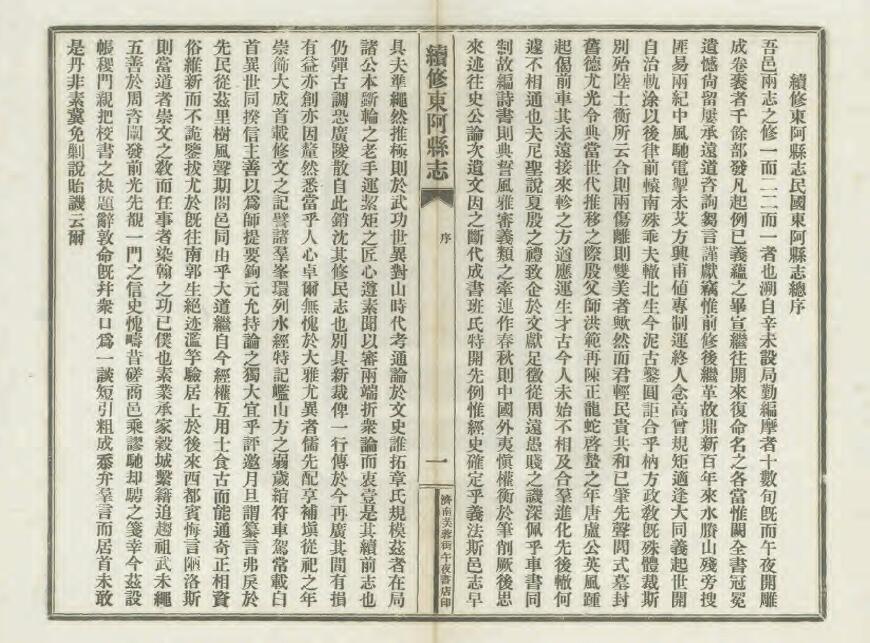 續修東阿縣志民國東阿縣志總序
吾邑兩志之修一而二二而一者也溯自辛未設局勤編摩者十數旬旣而午夜開雕
成卷袠者千餘部發凡起例已義蘊之畢宣繼往開來復命名之各當惟闕全書冠冕
遺憾尙留屢承遠道咨詢芻言謹獻竊惟前修後繼革故鼎新百年來水賸山殘旁搜
匪易兩紀中風馳電掣未艾方興甫値專制運終人念高曾規矩適逢大同義起世開
自治軌涂以後律前轅南殊乖夫轍北生今泥古鑿圓詎合乎枘方政敎旣殊體裁斯
別殆陸士衡所云合則兩傷離則雙美者歟然而君輕民貴共和已肇先聲閎式墓封
舊德尤光令典當世代推移之際殷父師洪範再陳正龍蛇啓蟄之年唐盧公英風踵
起偈前車其未遠接來軫之方遒應運生才古今人未始不相及合羣進化先後轍何
遽不相通也夫尼聖說夏殷之禮致企於文獻足徵從周遠愚賤之譏深佩乎車書同
制故編詩書則典誓風雅審義類之牽連作春秋則中國外夷愼權衡於筆削厥後思
來述往史公論次遺文因之斷代成書班氏特開先例惟經史確定乎義法斯邑志早
續修東阿縣志
序
一
濟南芙蓉街午夜書店印
具夫準繩然推極則於武功世異對山時代考通論於文史誰拓章氏規模茲者在局
諸公本斲輪之老手運絜矩之匠心遵素聞以審兩端折衆論而衷壹是其續前志也
仍彈古調恐廣陵散自此銷沈其修民志也別具新裁俾一行傳於今再廣其間有損
有益亦創亦因釐然悉當乎人心卓爾無愧於大雅尤異者儒先配享補塡從祀之年
崇飾大成首載修文之記譬諸羣峯環列水經特記巏山方之弱歲綰符車駕常載白
首異世同揆信主善以爲師提要鉤元允持論之獨大宜乎評邀月旦謂纂言弗戾於
先民從茲里樹風聲期闔邑同由乎大道繼自今經權互用士食古而能通奇正相資
俗維新而不詭鑒拔尤於旣往南郭生絕迹濫竽驗居上於後來西都賓悔言陋洛斯
則當道者崇文之敎而任事者染翰之功已僕也素業承家穀城繫籍追趨祖武未繩
五善於周咨闡發前光先覩一門之信史愧疇昔磋商邑乘謬馳却聘之箋幸今茲設
帳稷門親把校書之袂題辭敦命旣幷衆口爲一談短引粗成忝弁羣言而居首未敢
是丹非素冀免剿說貽譏云爾